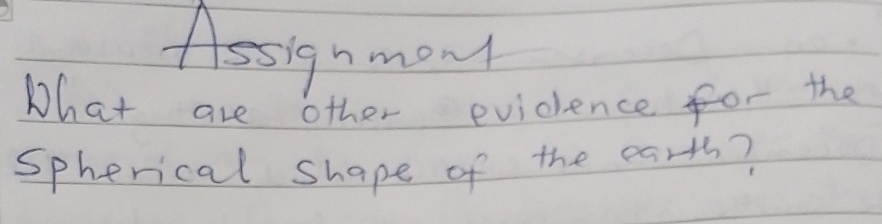 Assignment
What are other evidence for the
Spherical shape of the earth?